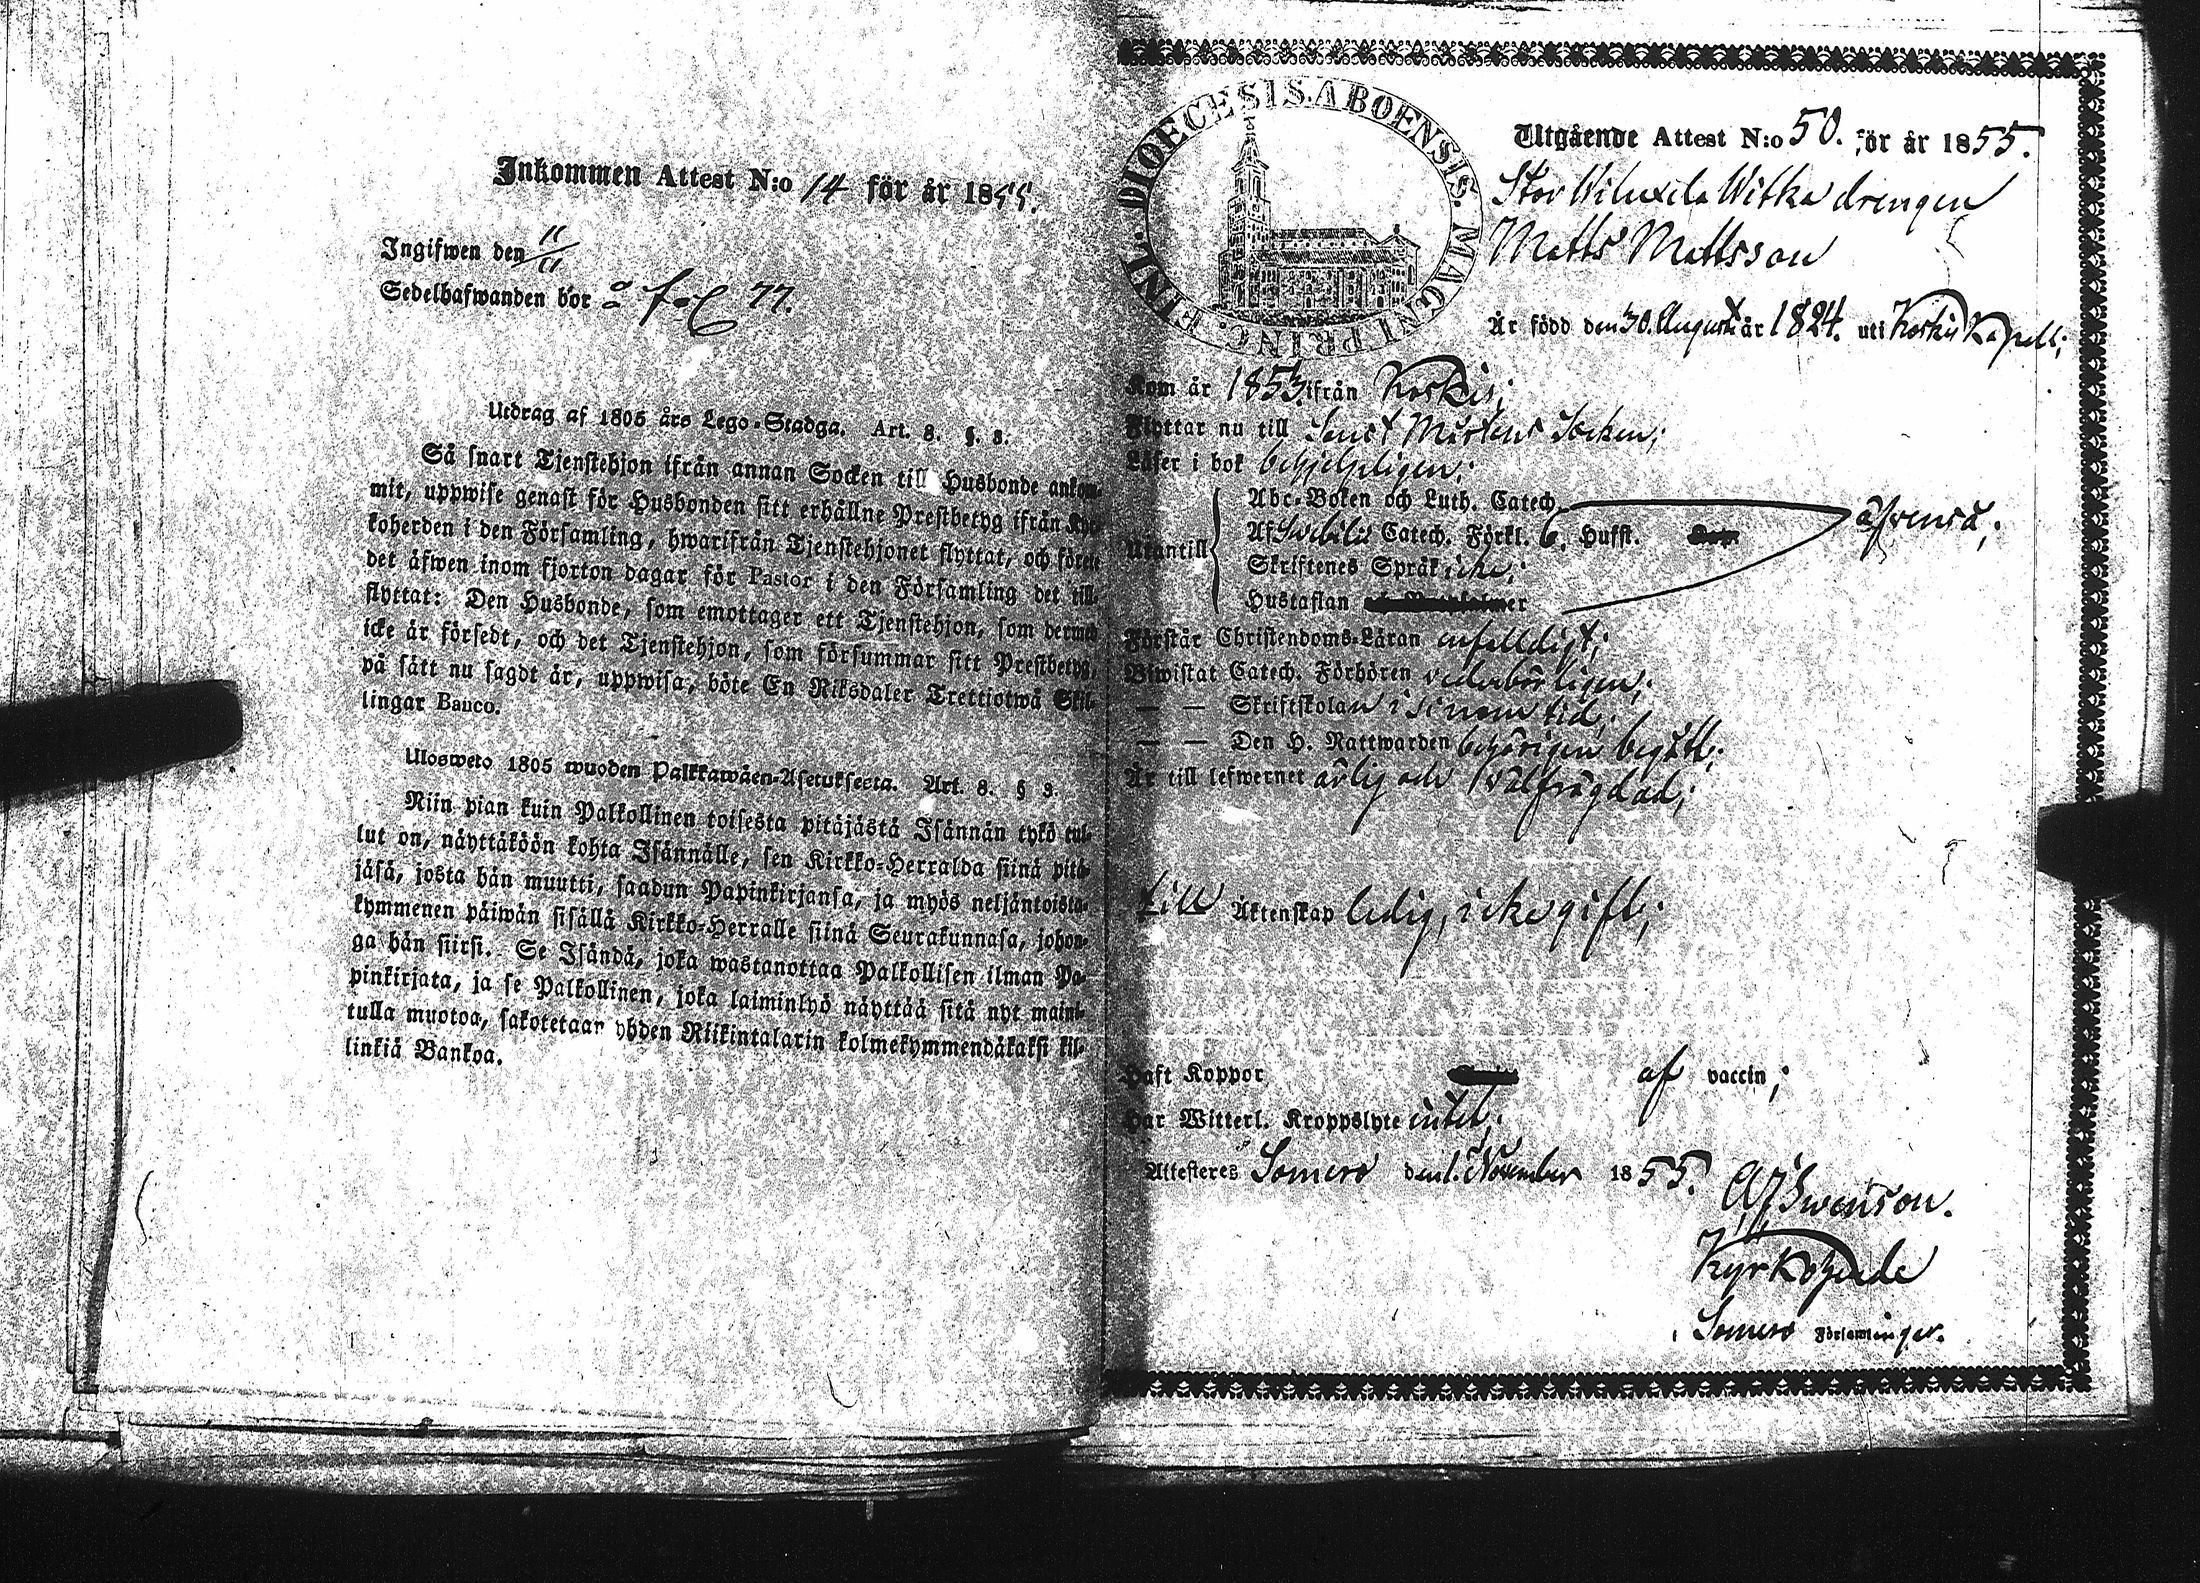 Inkommen Attest N:o 14 för år 1855.
Ingifwen den 11/11
Sedelhafwanden bor å fol 77.
Utdrag af 1805 års Lego-Stadga. Art. 8. §. 3.
Så snart Tjenstehjon ifrån annan Socken till Husbonde ankom-
mit, uppwise genast för Husbonden sitt erhållne Prestbetyg ifrån Kyr-
koherden i den Församling, hwarifrån Tjenstehjonet flyttat, och förete
det äfwen inom fjorton dagar för Pastor i den Församling det till-
flyttat: Den Husbonde, som emottager ett Tjenstehjon, som dermed
icke är försedt, och det Tjenstehjon, som försummar sitt Prestbetyg,
på sätt nu sagdt är, uppwisa, böte En Riksdaler Trettiotwå Skil-
lingar Banco.
Ulosweto 1805 wuoden Palkkawäen-Asetuksesta. Art. 8. § 3.
Niin pian kuin Palkollinen toisesta pitäjästä Isännän tykö tul-
lut on, näyttäköön kohta Isännälle, sen Kirkko-Herralda siinä pitä-
jäsä, josta hän muutti, saadun Papinkirjansa, ja myös neljäntoista-
kymmenen päiwän sisällä Kirkko-Herralle siinä Seurakunnasa, johon-
ga hän siirsi. Se Isändä, joka wastanottaa Palkollisen ilman Pa-
pinkirjata, ja se Palkollinen, joka laiminlyö näyttää sitä nyt maini-
tulla muotoa, sakotetaan yhden Riikintalarin kolmekymmendäkaksi kil-
linkiä Bankoa.
FINL. DIOECESIS. ABOENSIS. MAGNI PRINC.
Utgående Attest N:o 50. för år 1855.
Stor Wiluxela Witka drengen
Matts Mattsson
Är född den 30. August år 1824. uti Koskis Kapell;
Kom år 1853. ifrån Koskis;
Flyttar nu till Sanct Mårtens Socken;
Läser i bok behjelpligen;
Utantill
Abc-Boken och Luth. Catech.
Af Swebilii Catech. Förkl. 6. Hufst.
Skriftenes Språk icke;
Hustaflan
Förstår Christendoms-Läran enfalldigt;
Biwistat Catech. Förhören vederbörligen;
— — Skriftskolan i sinom tid;
— — Den H. Nattwarden behörigen begått;
Är till lefwernet ärlig och Wälfrägdad;
till Äktenskap ledig, icke gift;
Haft Koppor af vaccin;
Har Witterl. Kroppslyte intet;
Attesteres Somero den 1. November 1855.
Swenson.
Kyrkoherde
Somero Församlinger.